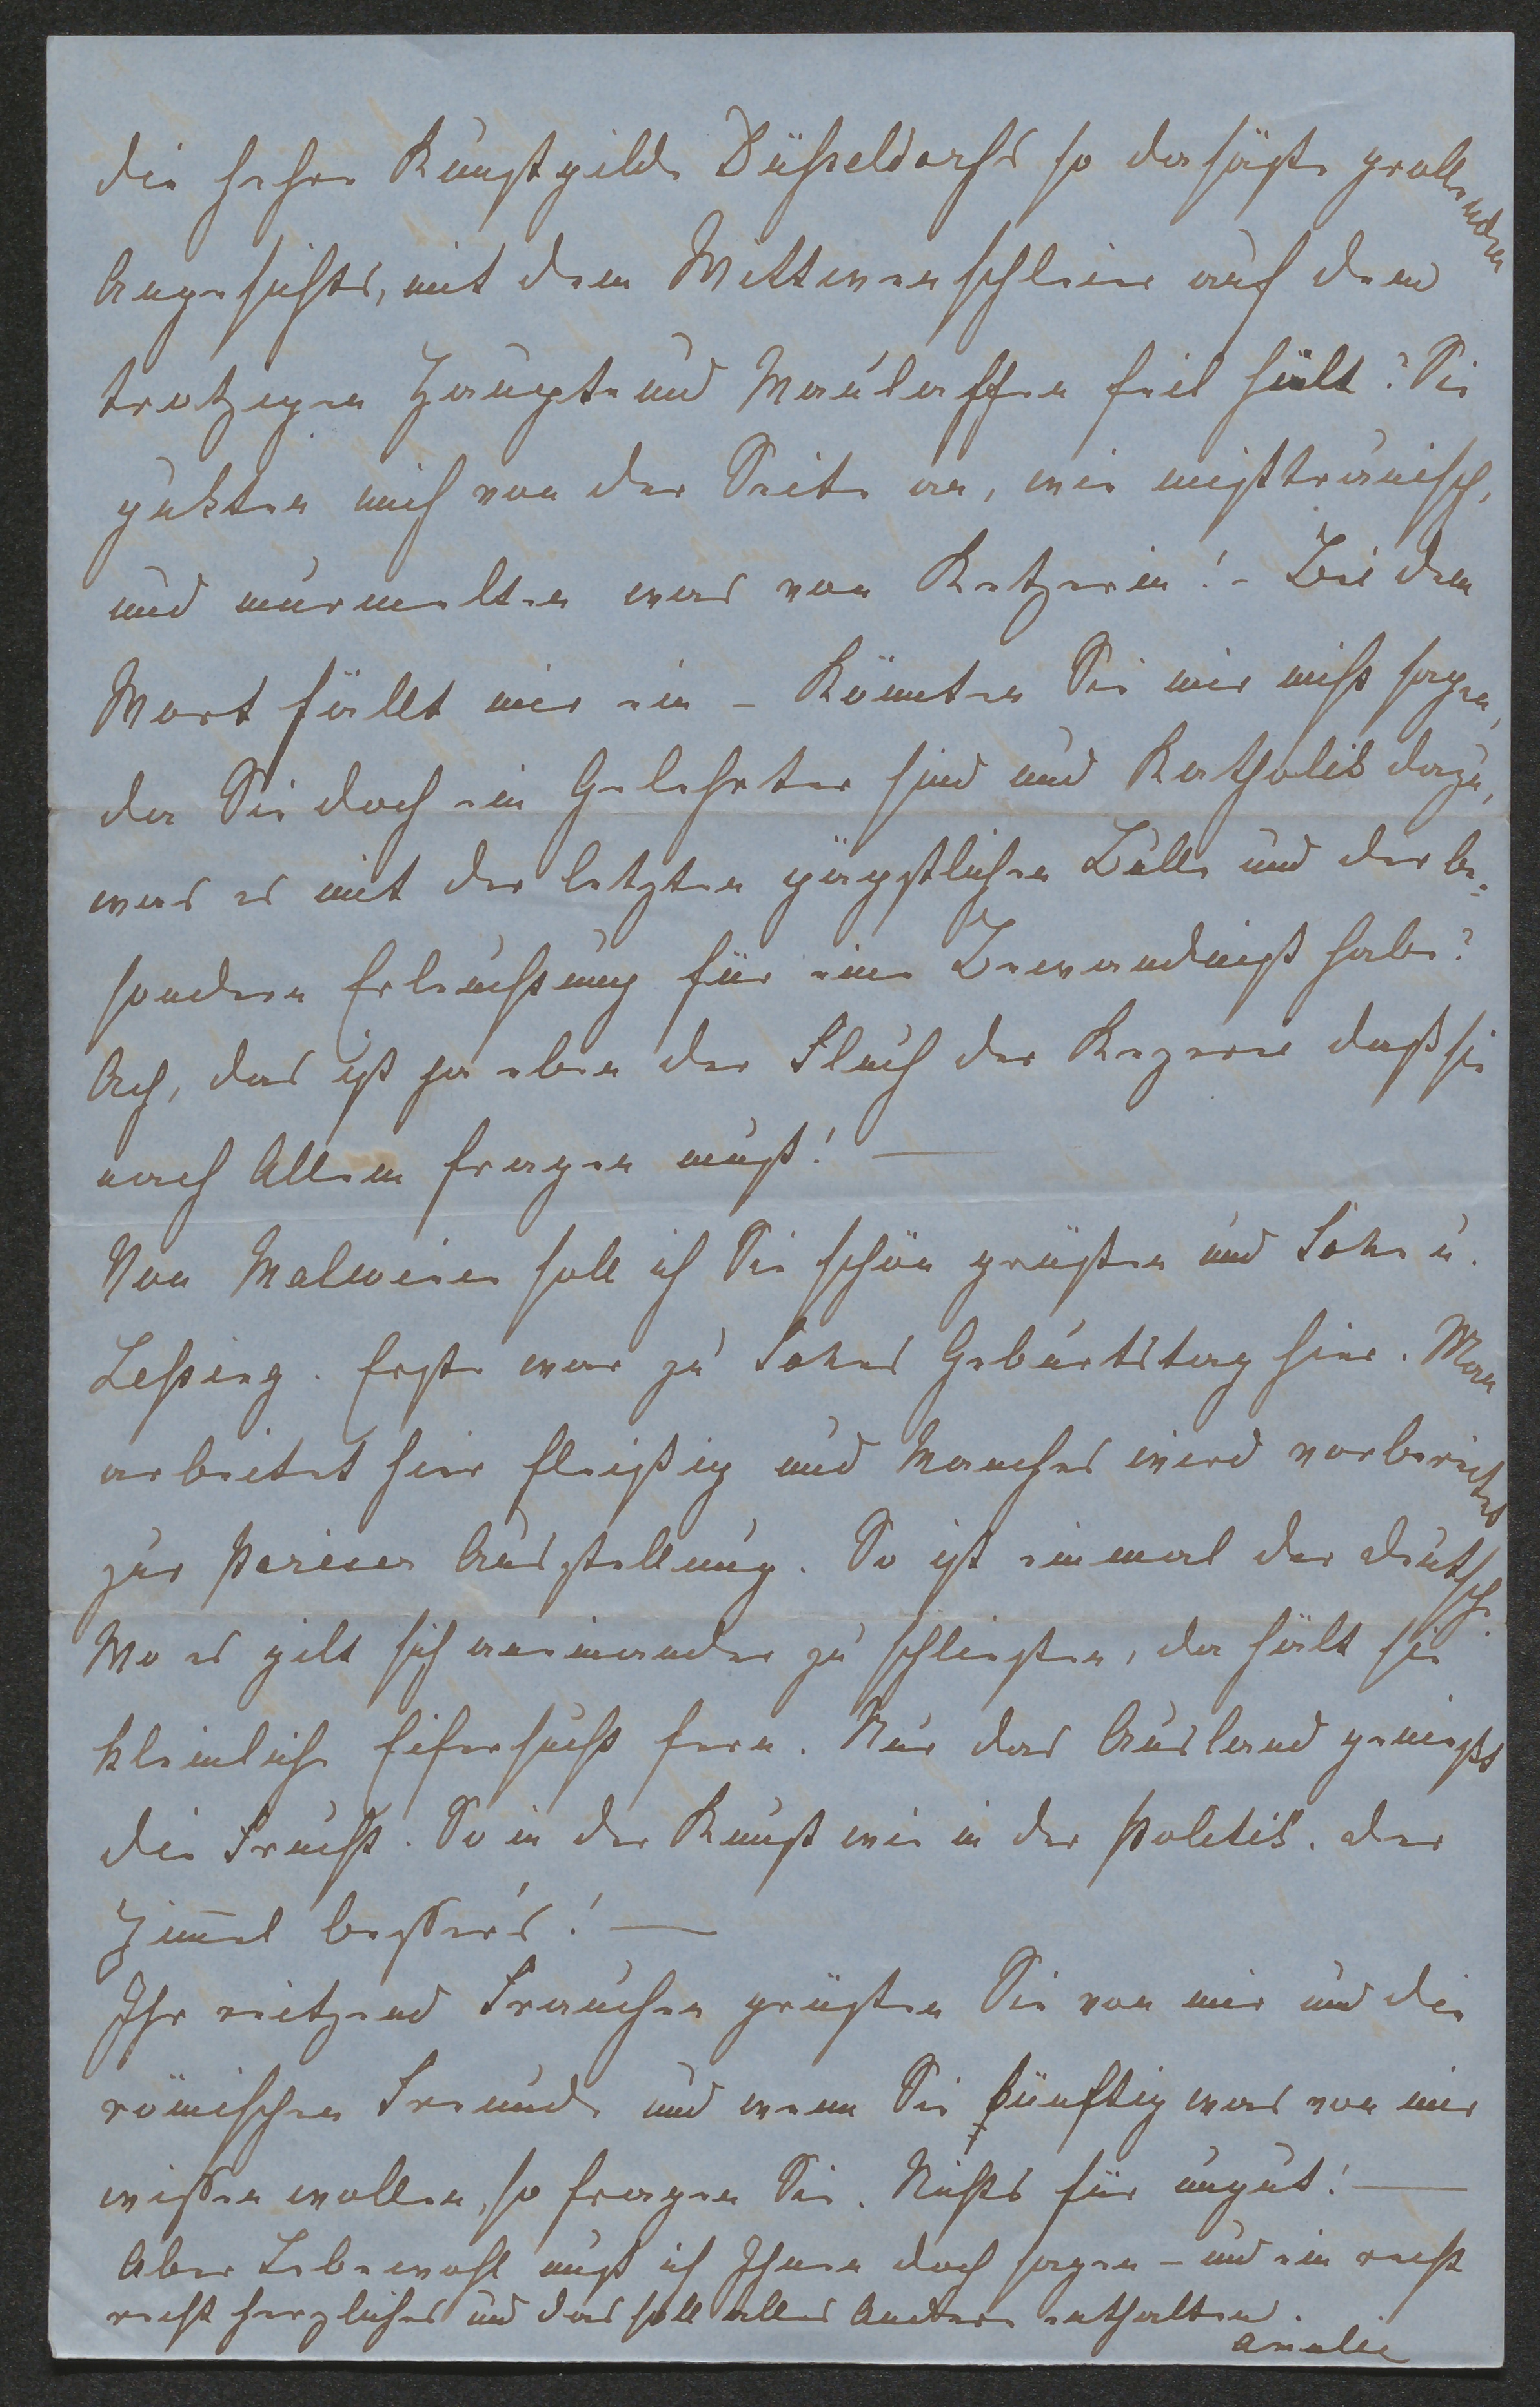 die hehre Kunstgilde Düsseldorfs so dasäße grollenden
Angesichts, mit dem Wittwenschleier auf dem
trotzigen Haupte und Maulaffen feil hielt? Sie
gukten mich von der Seite an, wie mißtrauisch,
und murmelten was von Ketzerin! – Bei dem
Wort fällt mir ein – Könnten Sie mir nicht sagen,
da Sie doch ein Gelehrter sind und Katholik dazu,
was es mit der letzten päpstlichen Bulle und der be=
sondern Erleuchtung für eine Bewandniß habe?
Ach, das ist ja eben der Fluch der Kezerei daß sie
nach Allem fragen muß! —
Von Malwine soll ich Sie schön grüßen und Sohn u.
Lessing. Erste war zu Sohns Geburtstag hier. Man
arbeitet hier fleißig und Manches wird vorbereitet
zur Pariser Ausstellung. So ist einmal der Deutsche.
Wo es gilt sich aneinander zu schließen, da hält sie
kleinliche Eifersucht fern. Nur das Ausland genießt
die Frucht. So in der Kunst wie in der Politik. Der
Himel besser's! —
Ihr reitzend Frauchen grüßen Sie von mir und die
römischen Freunde und wenn Sie künftig was von mir
wissen wollen, so fragen Sie. Nichts für ungut! —
Aber Lebewohl muß ich Ihnen doch sagen – und ein recht
recht herzliches und das soll alles Andere enthalten.
Amalie